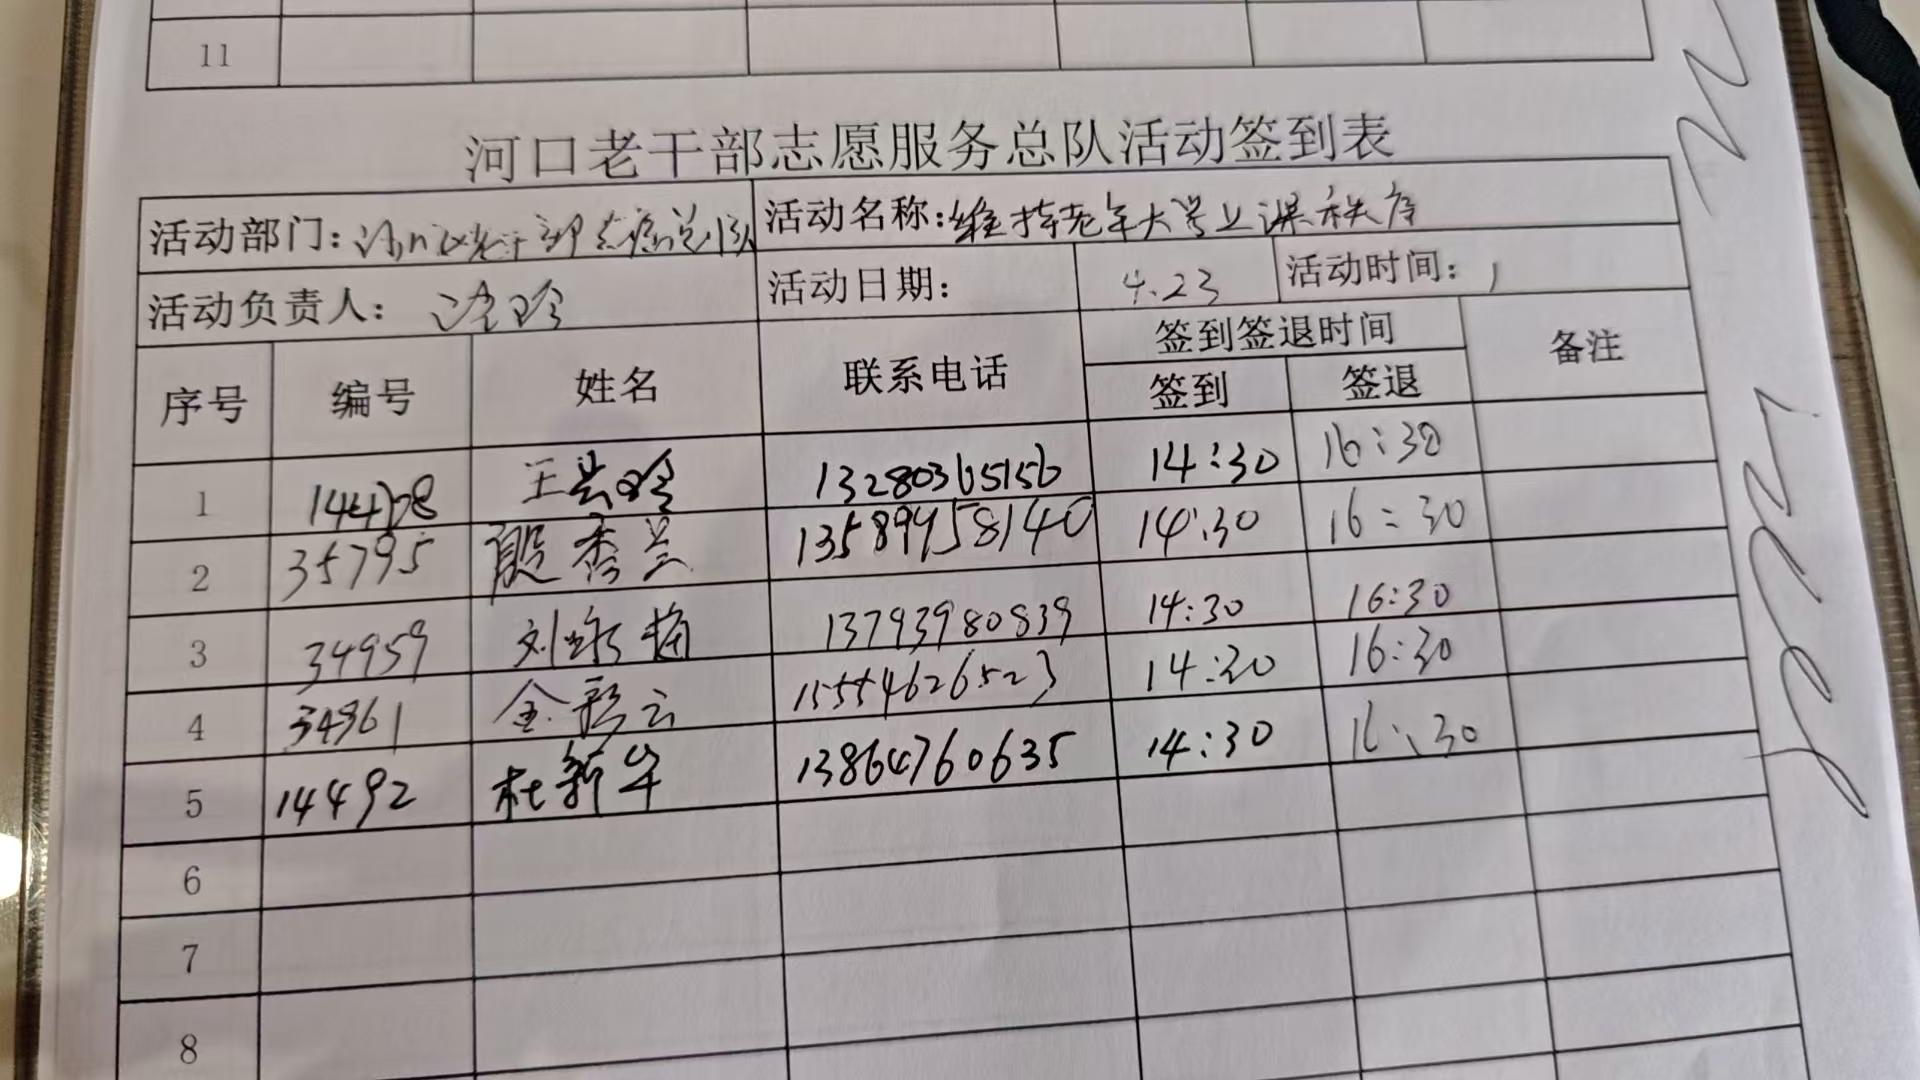 11
河口老干部志愿服务总队活动签到表
活动部门: 活动名称:维持老年大学上课秩序
活动负责人: 活动日期: 4.23 活动时间:
序号 编号 姓名 联系电话 签到签退时间 备注
签到 签退
1 王 13280365156 14:30 16:30
2 35795 殷秀兰 13589958140 14:30 16:30
3 34959 刘 梅 13793980839 14:30 16:30
4 34961 金彩云 15554626523 14:30 16:30
5 14492 杜新华 13864760635 14:30 16:30
6
7
8